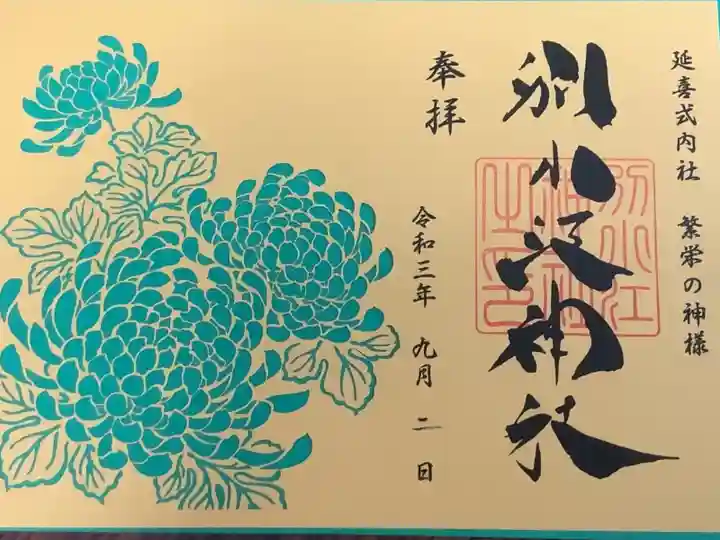 延喜式内社 繁栄の神様
別小江神社
別小江
神社
之印
奉拝
令和三年 九月 二 日